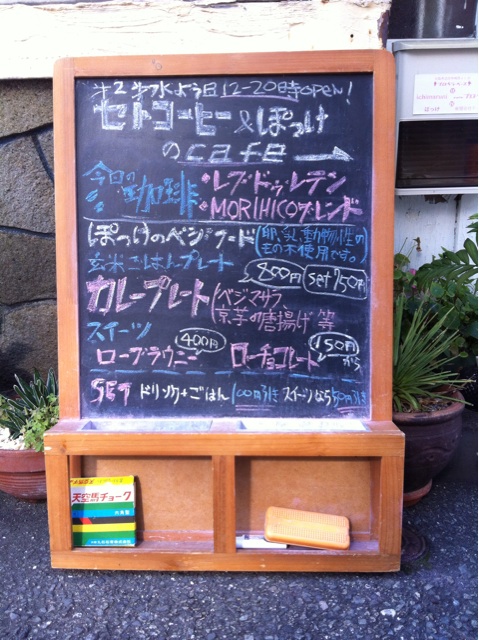 第2第4水よう日12-20時open!
セトコーヒー&ぽっけ
のcafe →
今日の珈琲 ・レブ・ドゥ・レテン
・MORIHICOブレンド
ぽっけのベジ・フード (卵、乳、動物性のもの不使用です。)
玄米ごはんプレート 800円 set 750円
カレープレート (ベジマサラ、
京芋の唐揚げ 等
スイーツ 400円 150円から
ローブラウニー ローチョコレート
SET ドリンク+ごはん 100円引き スイーツなら50円引き
天空馬チョーク